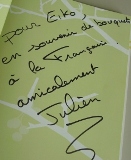 pour Eiko,
en souvenir de bouquet
à la Française.
amicalement
Julien